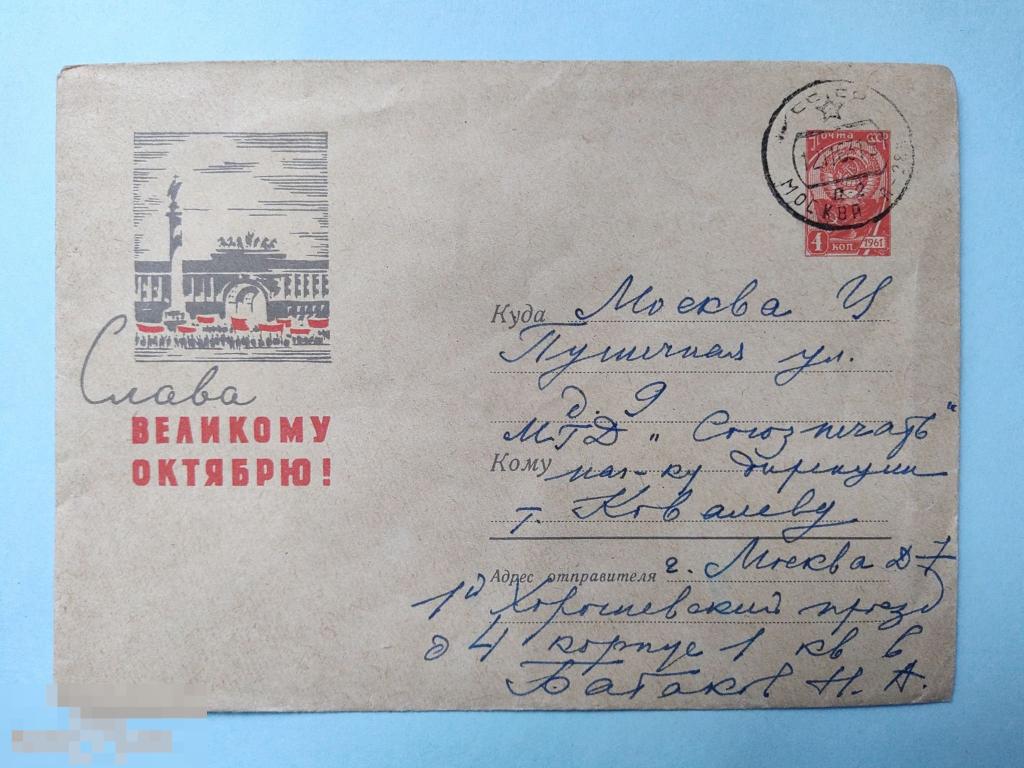 Слава
ВЕЛИКОМУ
ОКТЯБРЮ!
МОСКВА
Почта СССР
4 коп. 1961
Куда Москва Ц
Пушечная ул.
д. 9
МГД „Союзпечать“
Кому нач-ку дирекции
т. Ковалеву
Адрес отправителя г. Москва Д-7
1й Хорошевский проезд
д 4 корпус 1 кв
Батаков Н. А.